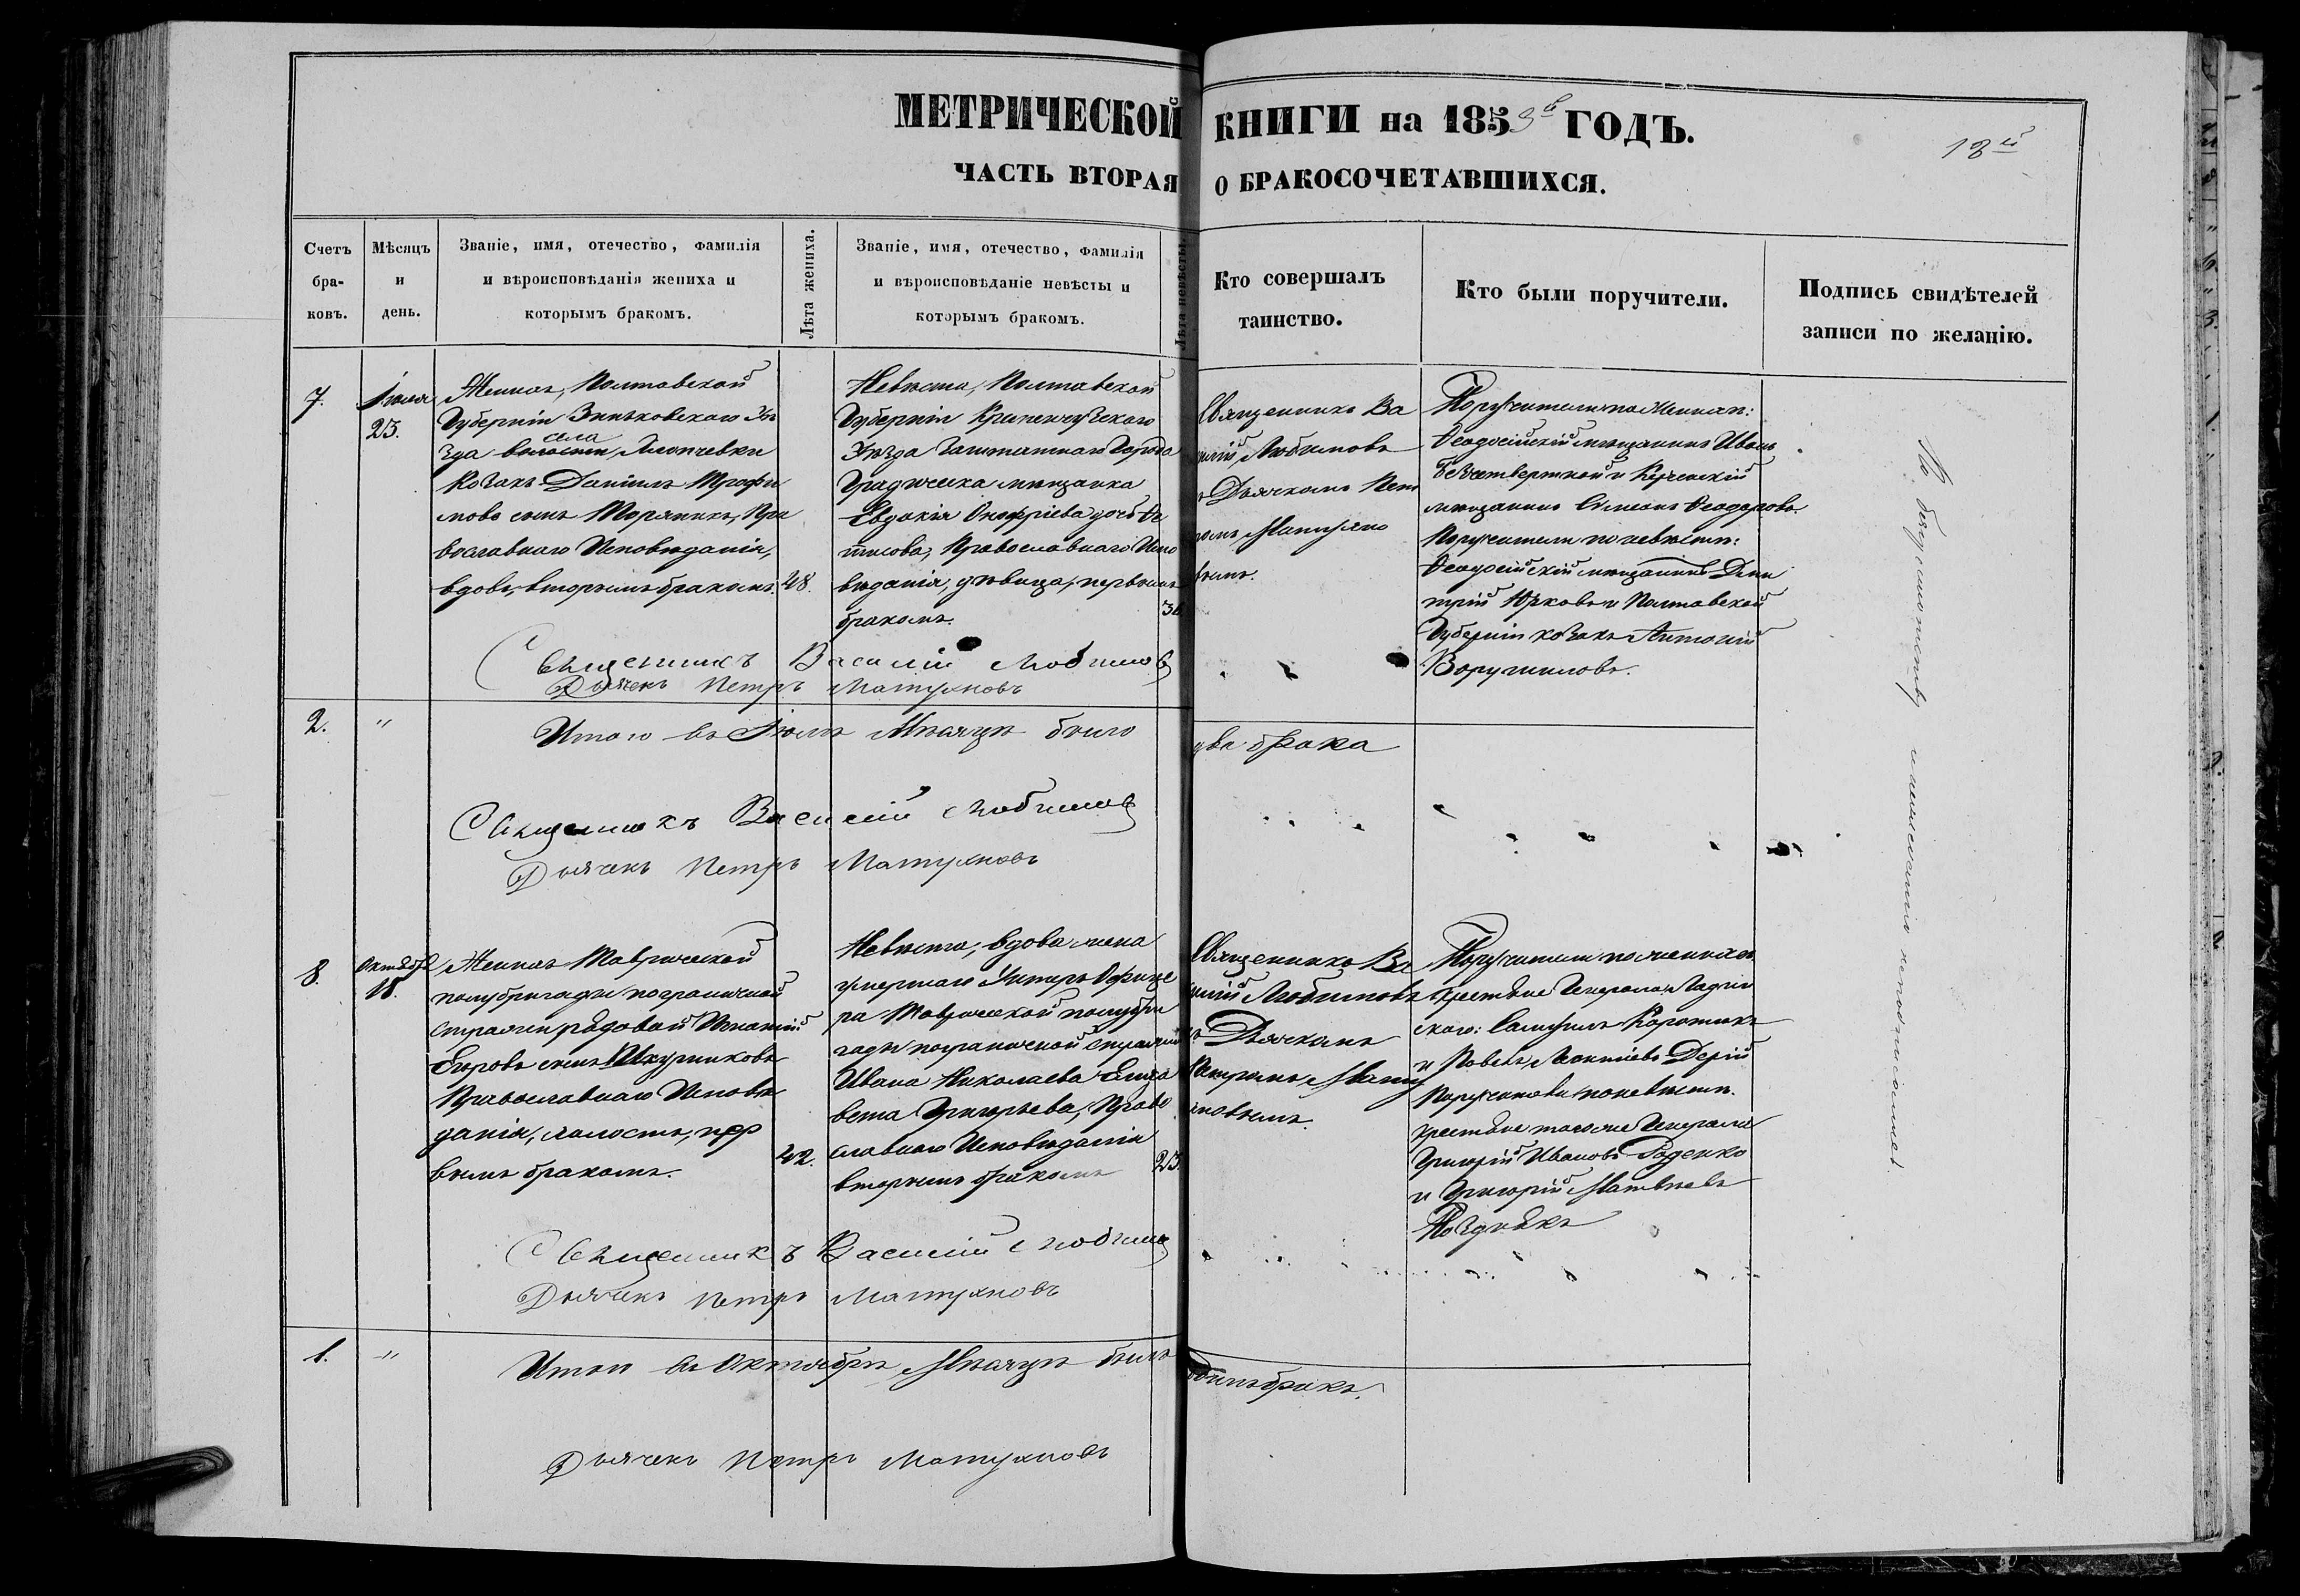 МЕТРИЧЕСКОЙ КНИГИ на 1853й ГОДЪ.
18й
ЧАСТЬ ВТОРАЯ О БРАКОСОЧЕТАВШИХСЯ.
Счетъ
бра-
ковъ.
Мѣсяцъ
и
день.
Званіе, имя, отечество, фамилія
и вѣроисповѣданія жениха и
которымъ бракомъ.
Лѣта жениха.
Званіе, имя, отечество, фамилія
и вѣроисповѣданіе невѣсты и
которымъ бракомъ.
Лѣта невѣсты.
Кто совершалъ
таинство.
Кто были поручители.
Подпись свидѣтелей
записи по желанію.
7.
Іюля
23.
Жених, Полтавской
Губерніи Зиньковскаго Уѣ
зда села
Козакъ Даніилъ Трофи
мовъ сынъ Торяникъ, Пра
вославнаго Исповѣданія,
вдовъ, вторымъ бракомъ.
48.
Невѣста, Полтавской
Губерніи Кременчугскаго
Уѣзда Заштатнаго Города
Градижска мѣщанка
Евдокія Онофріева дочь
Православнаго Испо
вѣданія, дѣвица, первымъ
бракомъ.
Священникъ Ва
силій Любимовъ
Дьячкомъ Пет
ромъ Матухно
вымъ.
Поручители по Жених:
Ѳеодосійскій мѣщанинъ Иванъ
и Керченскій
мѣщанинъ Симеонъ Ѳеодоровъ.
Поручители по невѣстѣ:
Ѳеодосійскій мѣщанинъ Дми
трій Юрковъ и Полтавской
Губерніи козакъ Антоній
Ворушиловъ.
Священникъ Василій Любимовъ
Дьячекъ Петръ Матухновъ
2.
"
Итого въ Іюлѣ Мѣсяцѣ было два брака
Священникъ Василій Любимовъ
Дьячекъ Петръ Матухновъ
8.
Октября
18.
Жених Таврической
полубригады пограничной
стражи рядовой Игнатій
Егоровъ сынъ
Православнаго Исповѣ
данія, холостъ, пер
вымъ бракомъ.
42.
Невѣста, вдова жена
умершаго Унтеръ Офице
ра Таврической полубри
гады пограничной стражи
Ивана Николаева Елиса
вета Григорьева, Право
славнаго Исповѣданія
вторымъ бракомъ
23.
Священникъ Ва
силій Любимовъ
съ Дьячкомъ
Петромъ Мату
хновымъ.
Поручители по женихѣ
крестьяне Генерала
Самуилъ Коротикъ
и Павелъ Леонтіевъ Дерій
по невѣстѣ.
крестьяне того же Генерала
Григорій Ивановъ Раденко
и Григорій Матвѣевъ
Позднякъ
Священникъ Василій Любимовъ
Дьячекъ Петръ Матухновъ
1.
"
Итого въ Октябрѣ Мѣсяцѣ былъ одинъ бракъ.
Дьячекъ Петръ Матухновъ
По безграмотству и неимѣнію